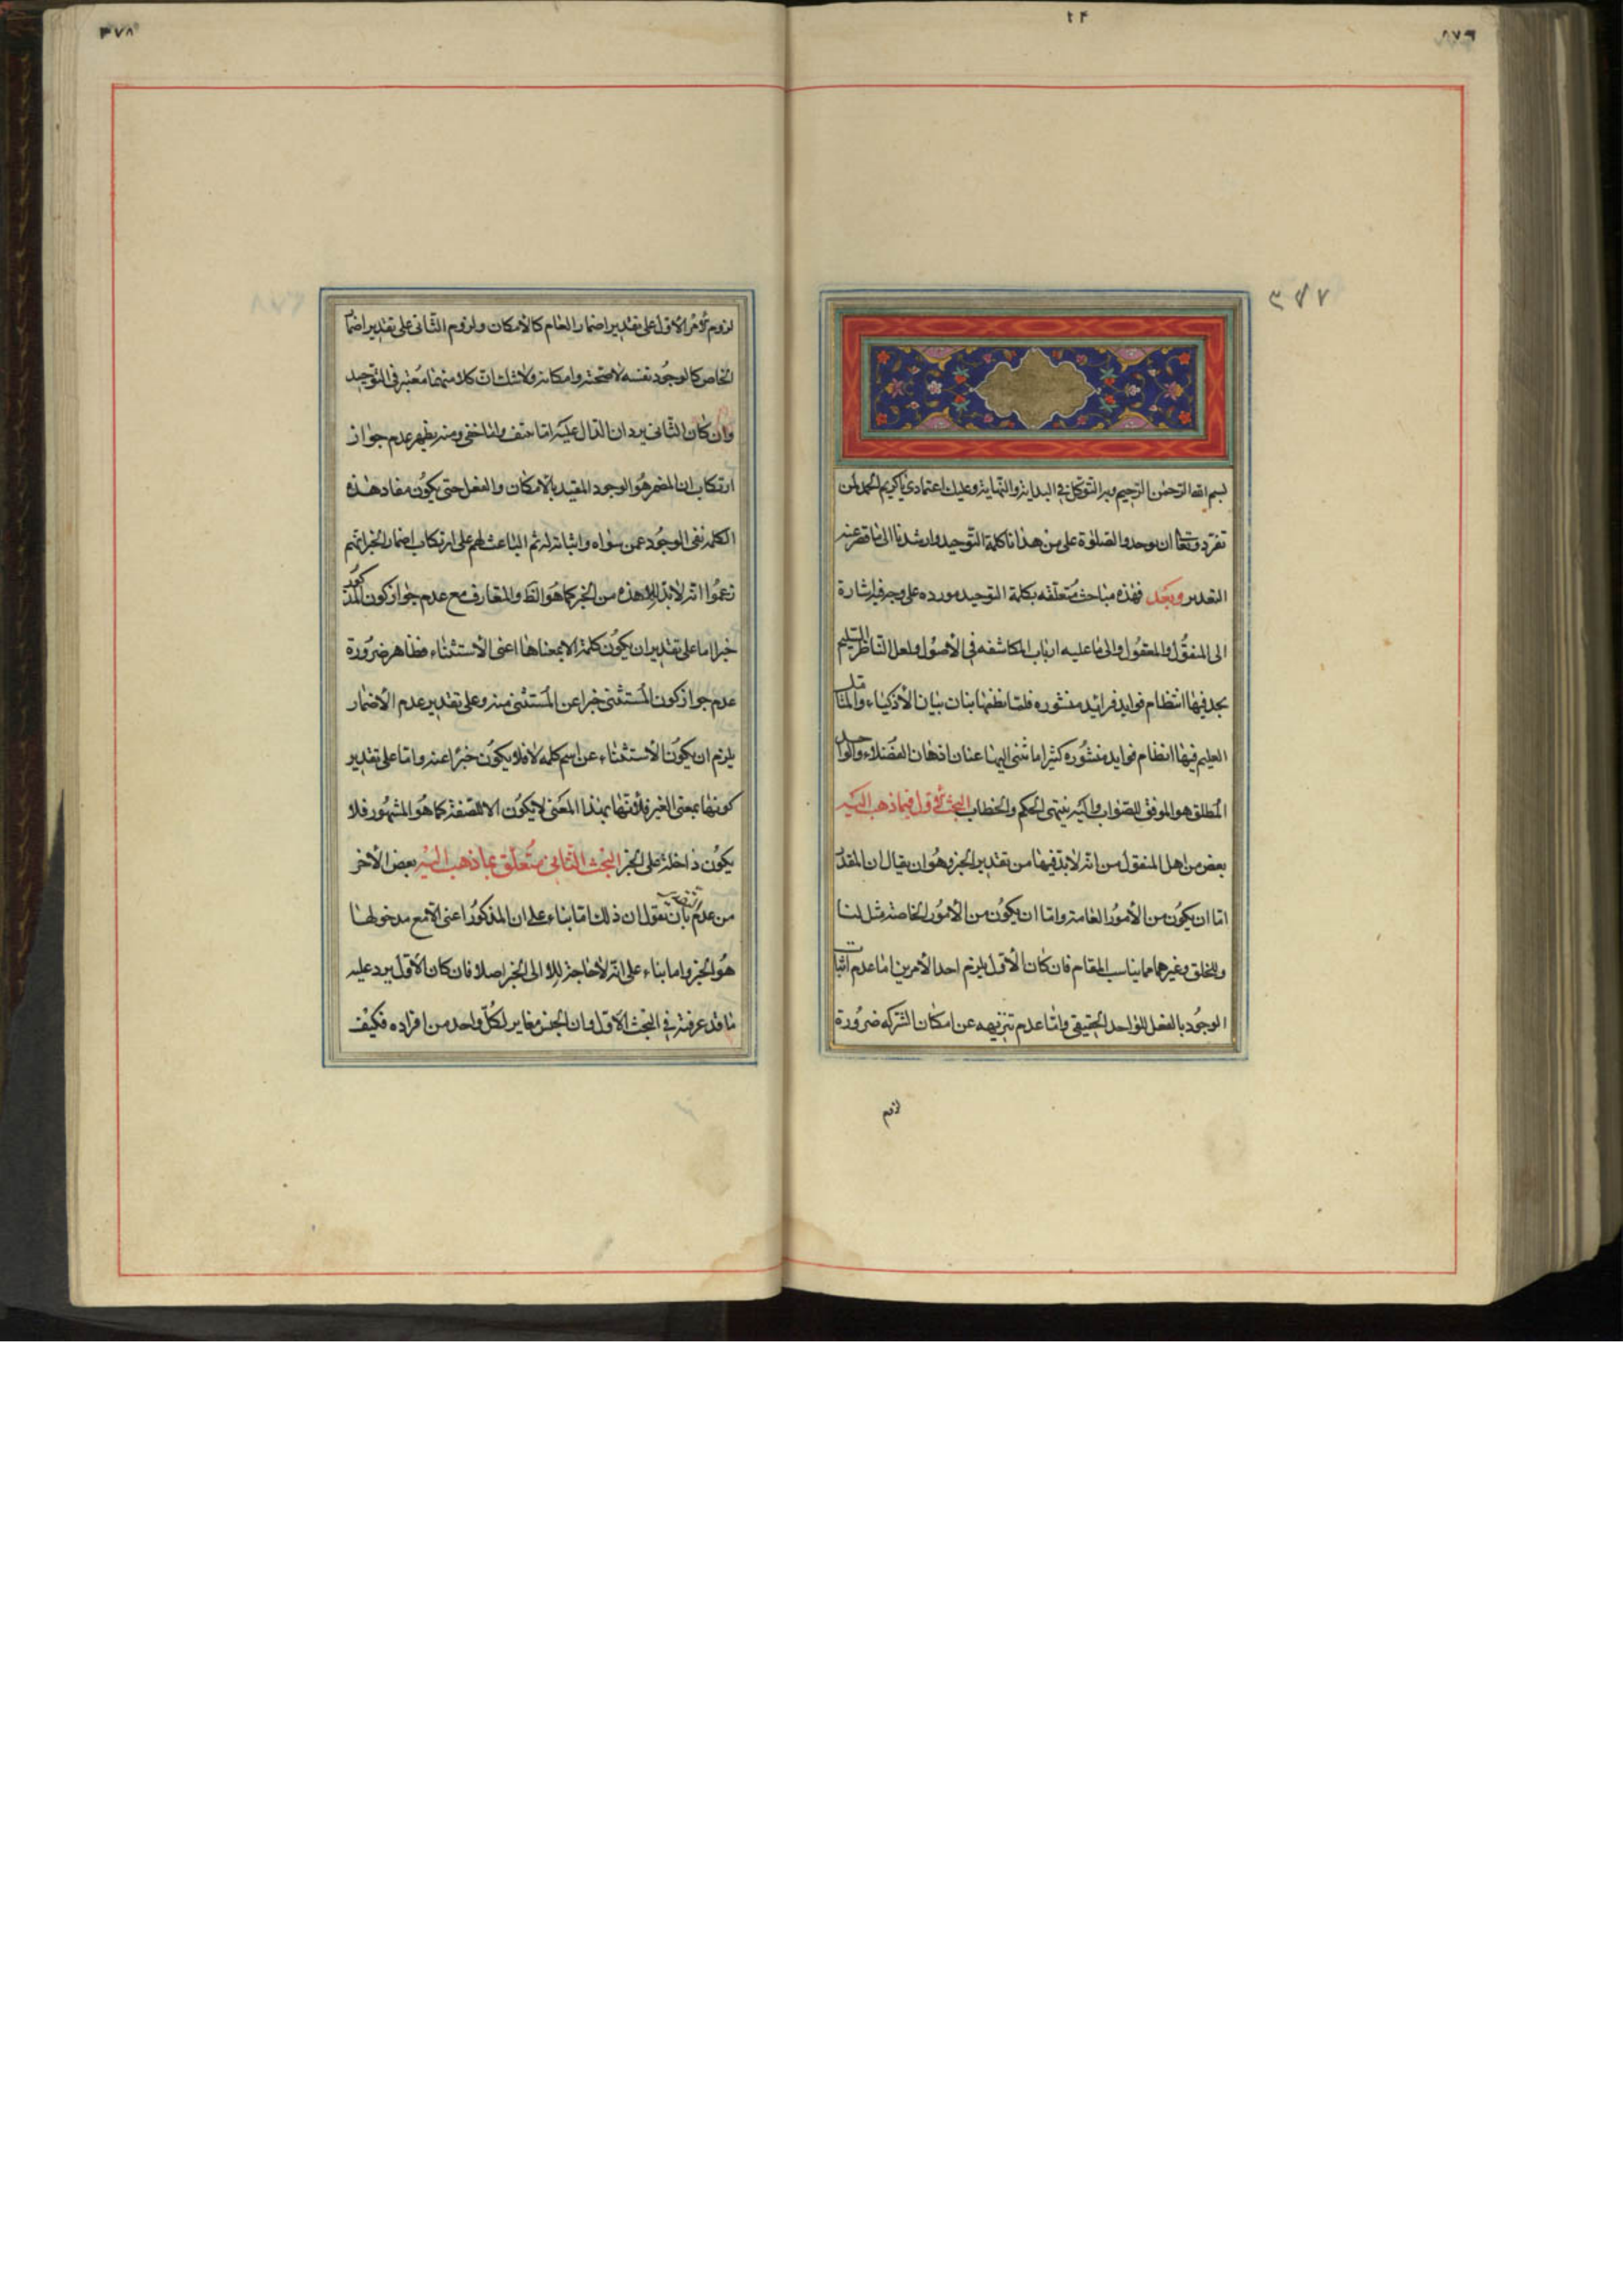 ٢٤
بسم الله الرحمن الرحيم وبه التوكل في البداية والنهاية وعليك اعتمادي يا كريم الحمد لمن
تفرد وتعالى ان يوحد والصلوة على من هدانا كلمة التوحيد وارشدنا الى ما قصر عنه
التعديد وبعد فهذه مباحث متعلقه بكلمة التوحيد مورده على وجه فيه اشارة
الى المنقول والمعقول والى ما عليه ارباب المكاشفه في الاصول ولعل الناظر السليم
يجد فيها انتظام فوايد فرائد منثوره فلما نظمها بنات بيان الاذكياء والمتامل
العليم فيها انضام فوايد منشوره كثيرا ما تثنى اليها عنان اذهان الفضلاء والواحد
المطلق هو الموفق للصواب واليه ينتهى الحكم والخطاب البحث الاول فيما ذهب اليه
بعض من اهل المنقول من انه لابد فيها من تقدير الخبر وهو ان يقال ان المقدر
اما ان يكون من الامور العامة واما ان يكون من الامور الخاصة مثل لنا
وللخلق وغيرهما مما يناسب المقام فان كان الاول يلزم احد الامرين اما عدم اثبات
الوجود بالفعل للواحد الحقيقي واما عدم تنزيهه عن امكان الشركه ضرورة
لزوم
٣٧٨
لزوم الامر الاول على تقدير اضمار العام كالامكان ولزوم الثاني على تقدير اضمار
الخاص كالوجود نفسه لا صحته وامكانه ولا شك ان كلا منهما معتبر في التوحيد
وان كان الثاني يرد ان الدال عليه اما منتف واما خفى ومنه يظهر عدم جواز
ارتكاب ان المضمر هو الوجود المقيد بالامكان والفعل حتى يكون مفاد هذه
الكلمه نفى الوجود عمن سواه واثباته له ثم الباعث لهم على ارتكاب اضمار الخبر انهم
زعموا انه لابد للا هذه من الخبر كما هو الظ والمتعارف مع عدم جواز كون المذكور
خبرا اما على تقدير ان يكون كلمة الا بمعناها اعنى الاستثناء فظاهر ضرورة
عدم جواز كون المستثنى خبرا عن المستثنى منه وعلى تقدير عدم الاضمار
يلزم ان يكون الاستثناء عن اسم كلمه لا فلا يكون خبرا عنه واما على تقدير
كونها بمعنى الغير فلانها بهذا المعنى لا يكون الا للصفة كما هو المشهور فلا
يكون داخلة على الخبر البحث الثاني متعلق بما ذهب اليه بعض الاخر
من عدم تقديره بان نقول ان ذلك اما بناء على ان المذكور اعنى الا مع مدخولها
هو الخبر واما بناء على انه لا حاجة للا الى الخبر اصلا فان كان الاول يرد عليه
ما قد عرفته في البحث الاول وان الجنس مغاير لكل واحد من افراده فكيف